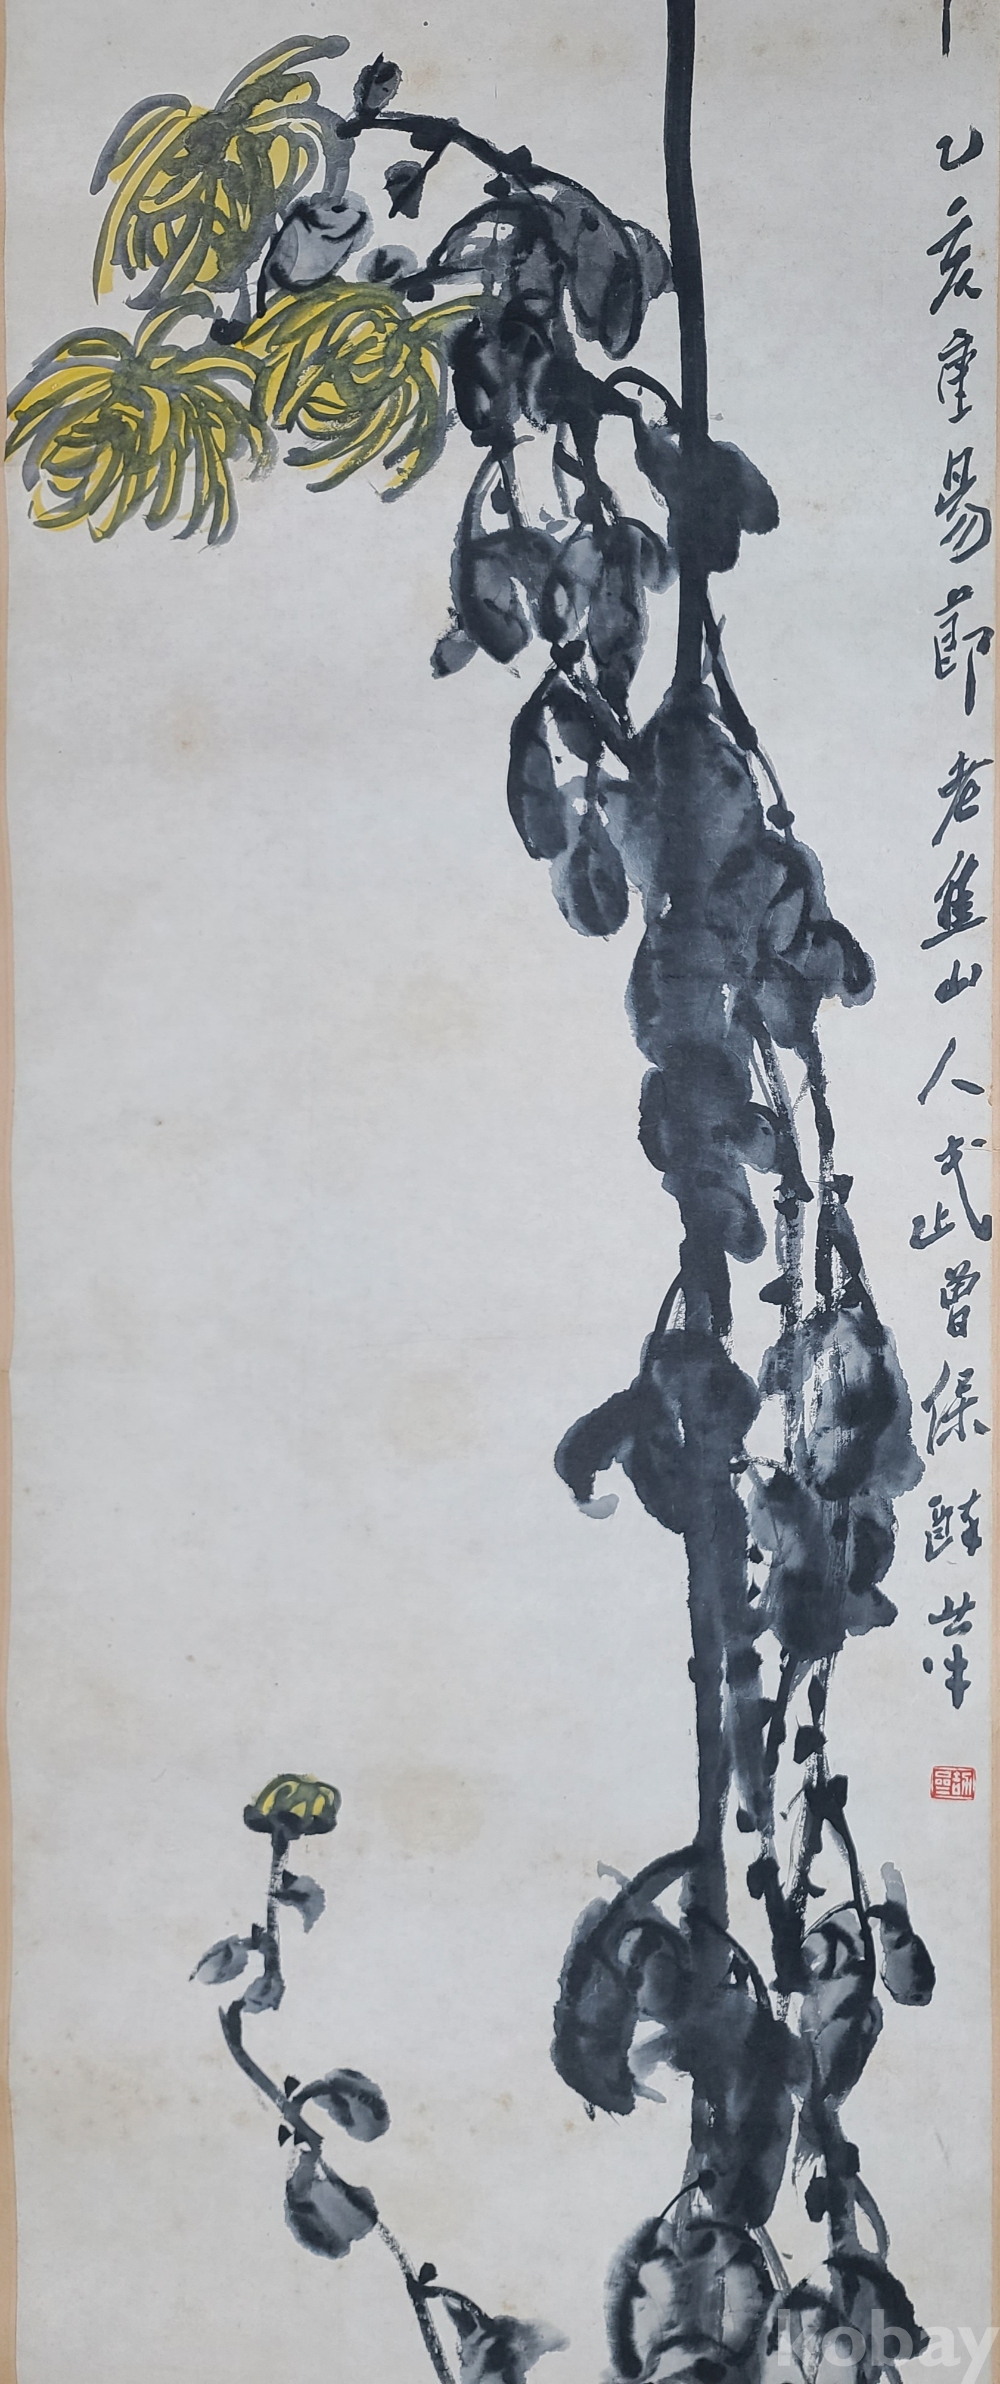 乙亥重昜節老焦山人武曾保醉筆
kobay